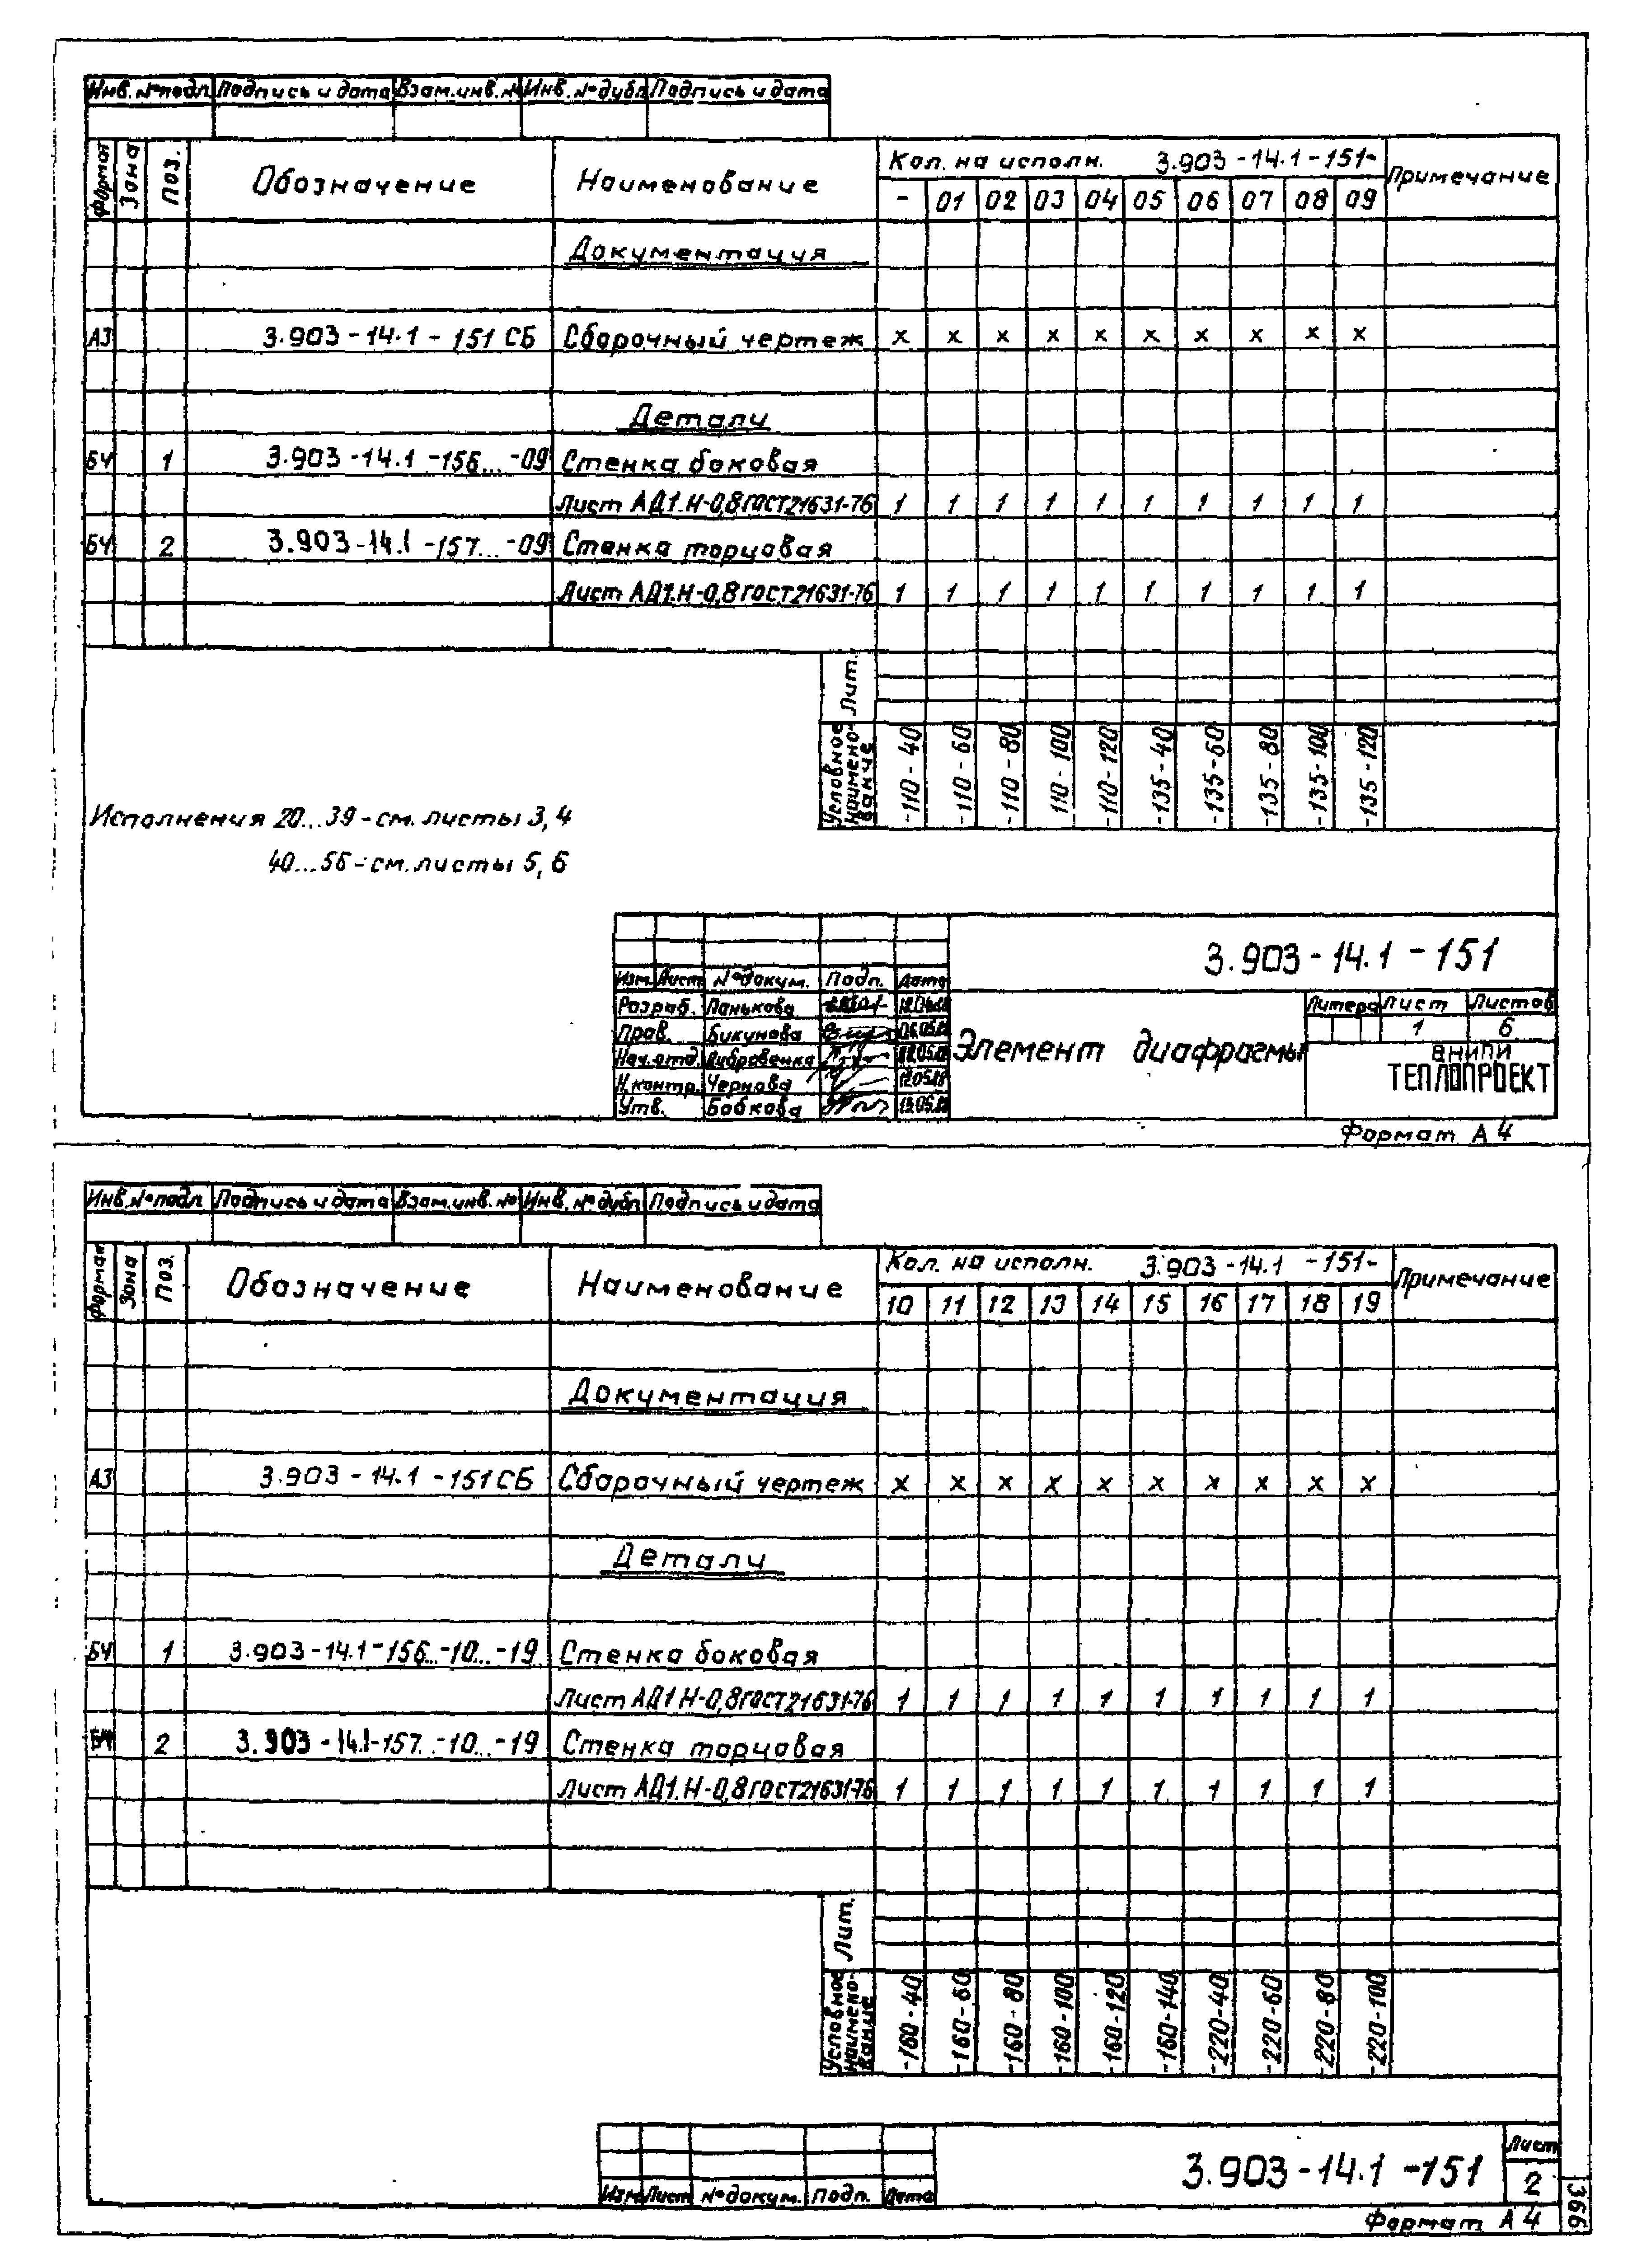 Инв. № подл. Подпись и дата Взам. инв. № Инв. № дубл Подпись и дата
Формат Зона Поз. Обозначение Наименование Кол. на исполн. 3.903-14.1-151- Примечание
- 01 02 03 04 05 06 07 08 09
Документация
А3 3.903-14.1-151 СБ Сборочный чертеж х х х х х х х х х х
Детали
БЧ 1 3.903-14.1-156... -09 Стенка боковая
Лист АД1.Н-0,8 ГОСТ 21631-76 1 1 1 1 1 1 1 1 1 1
БЧ 2 3.903-14.1-157... -09 Стенка торцовая
Лист АД1.Н-0,8 ГОСТ 21631-76 1 1 1 1 1 1 1 1 1 1
Лит.
Условное наименование -110-40 -110-60 -110-80 110-100 -110-120 -135-40 -135-60 -135-80 -135-100 -135-120
Исполнения 20...39 - см. листы 3, 4
40...56 - см. листы 5, 6
3.903-14.1-151
Изм. Лист № докум. Подп. Дата
Разраб. Панькова
Пров. Бикунова
Нач. отд. Дубровенко
Н. контр. Чернова
Утв. Бобкова
Элемент диафрагмы
Литера Лист Листов
1 6
ВНИПИ
ТЕПЛОПРОЕКТ
Формат А4
Инв. № подл. Подпись и дата Взам. инв. № Инв. № дубл Подпись и дата
Формат Зона Поз. Обозначение Наименование Кол. на исполн. 3.903-14.1 -151- Примечание
10 11 12 13 14 15 16 17 18 19
Документация
А3 3.903-14.1-151 СБ Сборочный чертеж х х х х х х х х х х
Детали
БЧ 1 3.903-14.1-156..-10...-19 Стенка боковая
Лист АД1.Н-0,8 ГОСТ 21631-76 1 1 1 1 1 1 1 1 1 1
БЧ 2 3.903-14.1-157..-10...-19 Стенка торцовая
Лист АД1.Н-0,8 ГОСТ 21631-76 1 1 1 1 1 1 1 1 1 1
Лит.
Условное наименование -160-40 -160-60 -160-80 -160-100 -160-120 -160-140 -220-40 -220-60 -220-80 -220-100
3.903-14.1-151
Лист
2
Изм Лист № докум. Подп. Дата
Формат А4
366